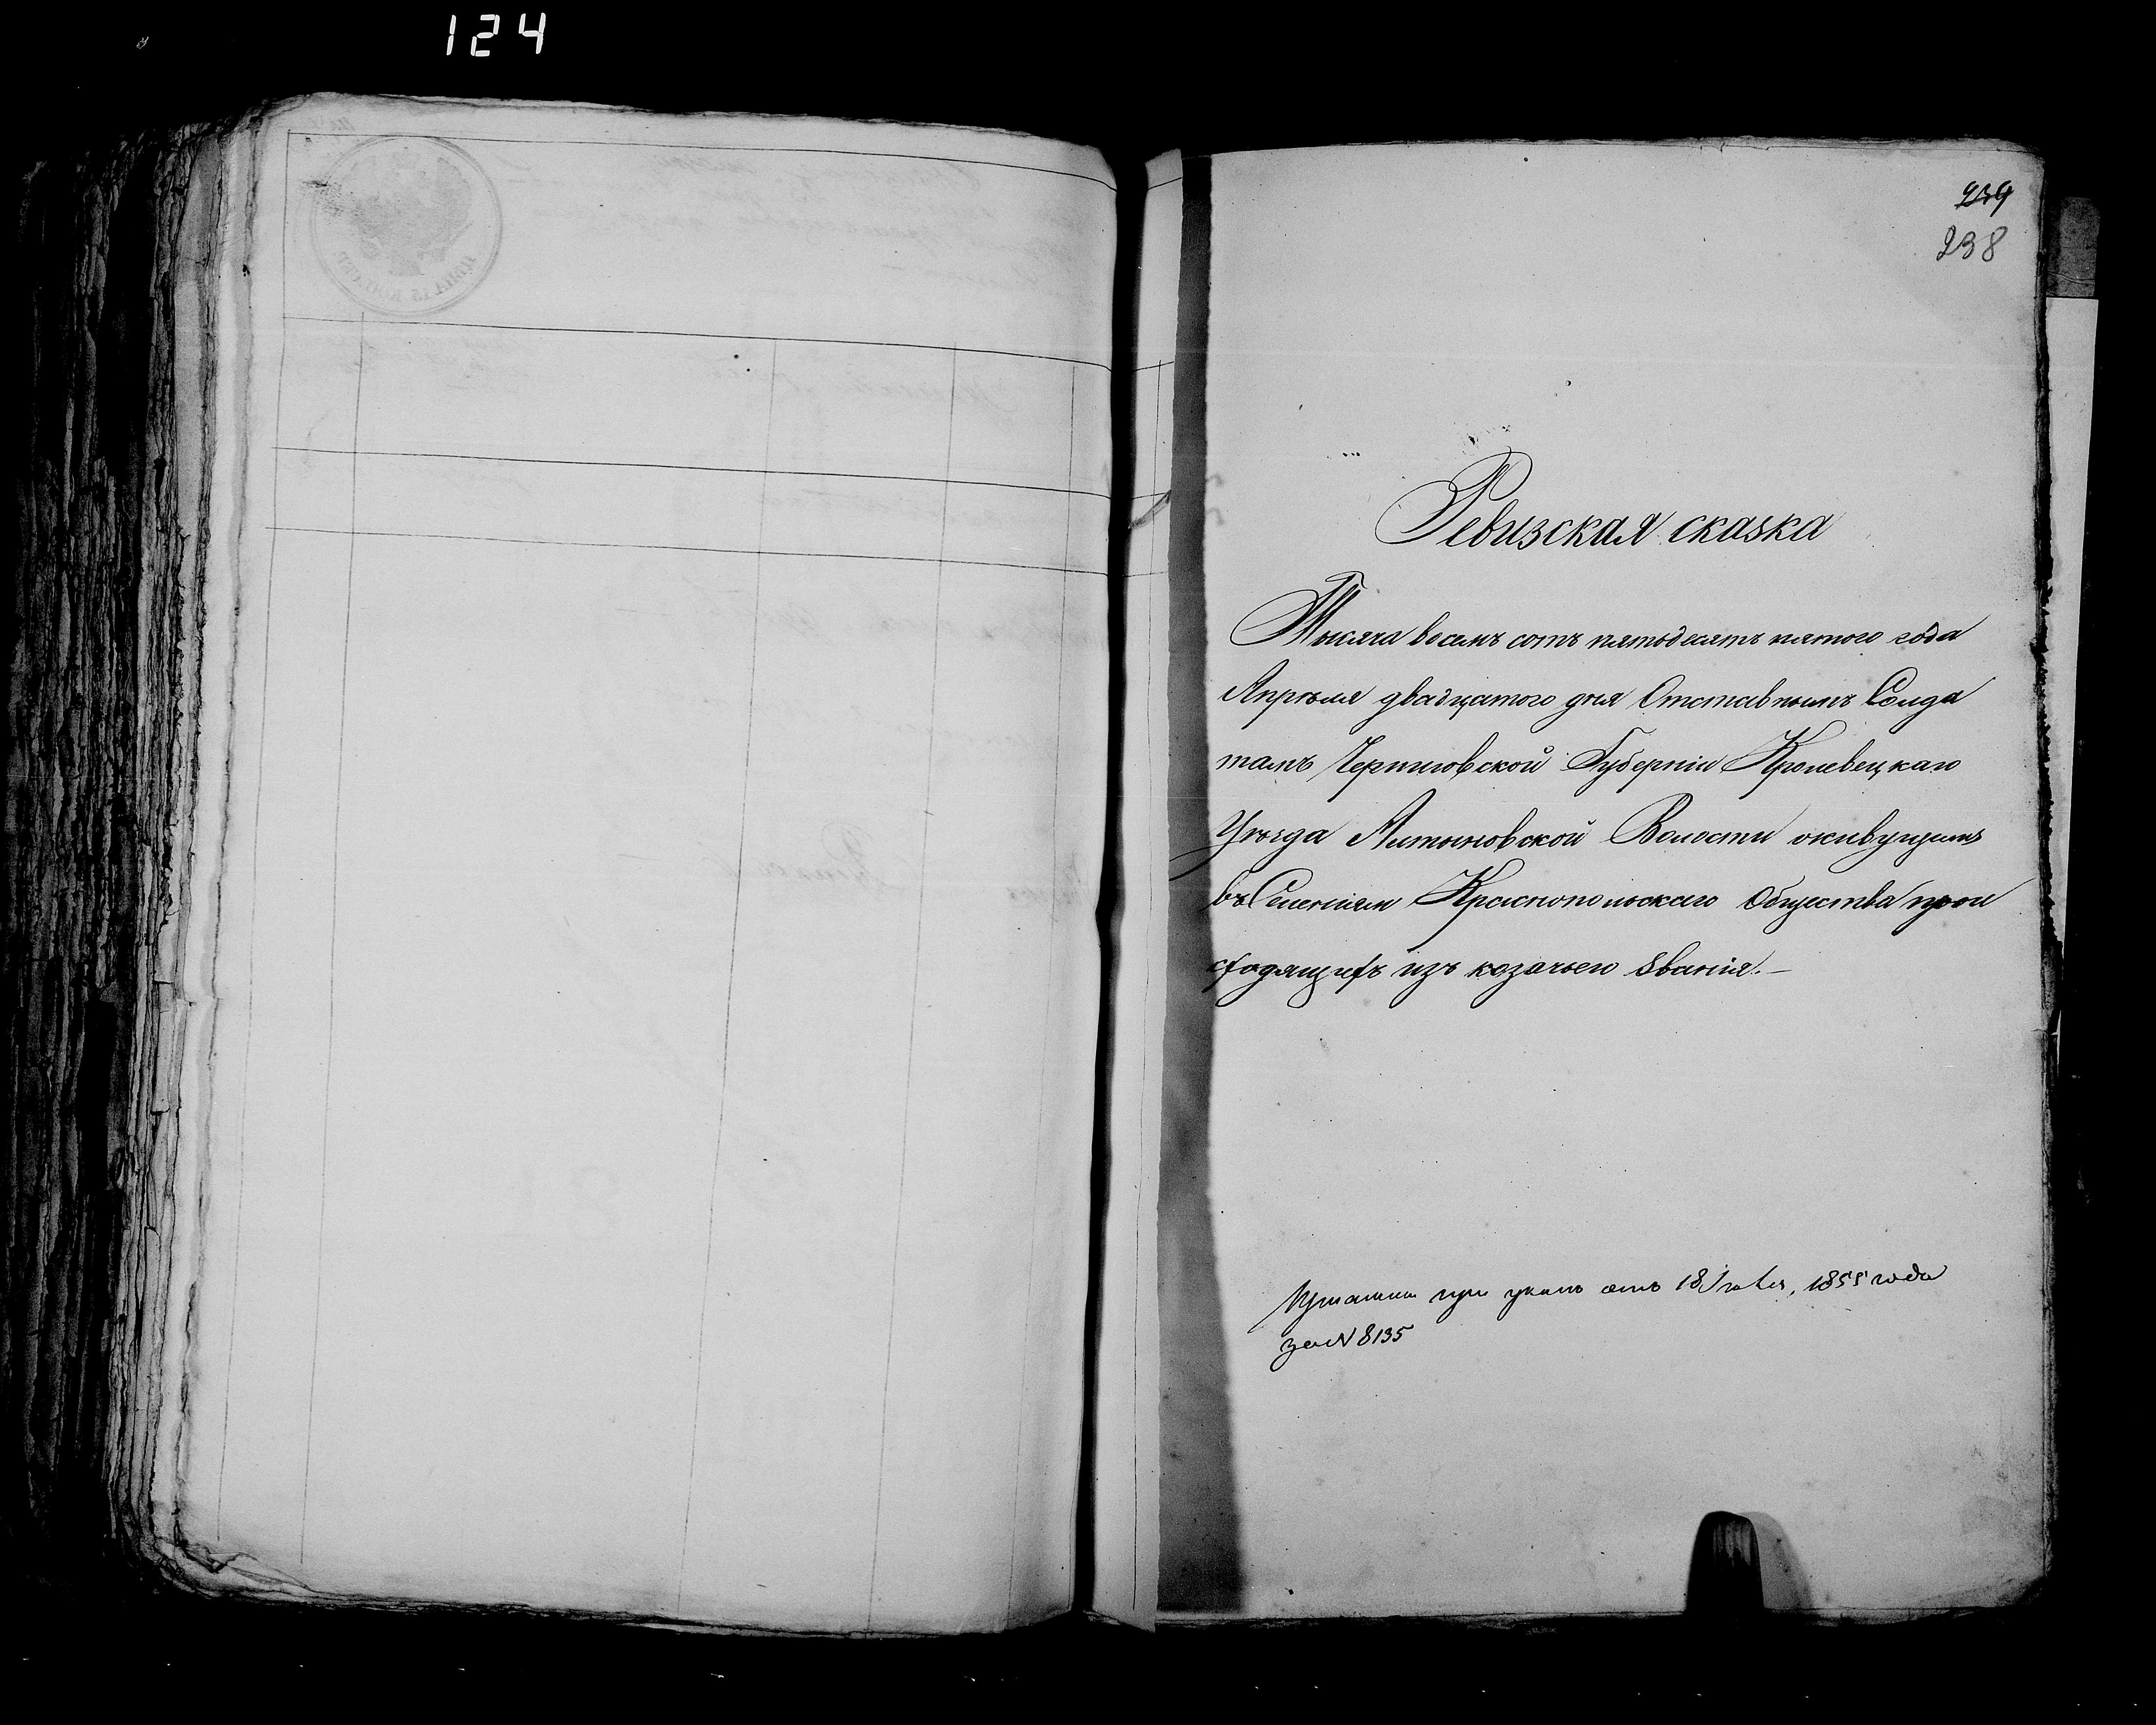 124
239
238
Ревизская сказка
Тысяча восемь сотъ пятьдесятъ пятого года
Апрѣля двадцатого дня Отставнымъ Солда
тамъ Черниговской Губерніи Кролевецкаго
Уѣзда Алтыновской Волости живущимъ
въ Селеніям Краснопольскаго Общества прои
сходящихъ изъ козачьего званія.—
при указѣ отъ 18 1855 года
за N 8135